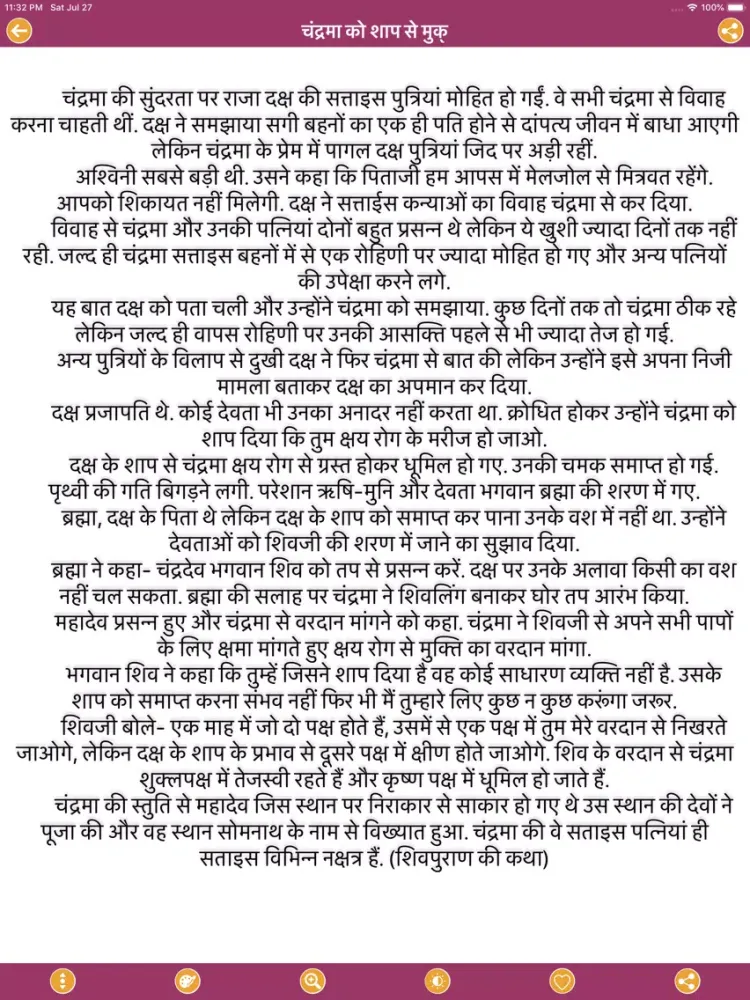 11:32 PM Sat Jul 27
100%
चंद्रमा को शाप से मुक्
चंद्रमा की सुंदरता पर राजा दक्ष की सत्ताइस पुत्रियां मोहित हो गईं. वे सभी चंद्रमा से विवाह
करना चाहती थीं. दक्ष ने समझाया सगी बहनों का एक ही पति होने से दांपत्य जीवन में बाधा आएगी
लेकिन चंद्रमा के प्रेम में पागल दक्ष पुत्रियां जिद पर अड़ी रहीं.
अश्विनी सबसे बड़ी थी. उसने कहा कि पिताजी हम आपस में मेलजोल से मित्रवत रहेंगे.
आपको शिकायत नहीं मिलेगी. दक्ष ने सत्ताईस कन्याओं का विवाह चंद्रमा से कर दिया.
विवाह से चंद्रमा और उनकी पत्नियां दोनों बहुत प्रसन्न थे लेकिन ये खुशी ज्यादा दिनों तक नहीं
रही. जल्द ही चंद्रमा सत्ताइस बहनों में से एक रोहिणी पर ज्यादा मोहित हो गए और अन्य पत्नियों
की उपेक्षा करने लगे.
यह बात दक्ष को पता चली और उन्होंने चंद्रमा को समझाया. कुछ दिनों तक तो चंद्रमा ठीक रहे
लेकिन जल्द ही वापस रोहिणी पर उनकी आसक्ति पहले से भी ज्यादा तेज हो गई.
अन्य पुत्रियों के विलाप से दुखी दक्ष ने फिर चंद्रमा से बात की लेकिन उन्होंने इसे अपना निजी
मामला बताकर दक्ष का अपमान कर दिया.
दक्ष प्रजापति थे. कोई देवता भी उनका अनादर नहीं करता था. क्रोधित होकर उन्होंने चंद्रमा को
शाप दिया कि तुम क्षय रोग के मरीज हो जाओ.
दक्ष के शाप से चंद्रमा क्षय रोग से ग्रस्त होकर धूमिल हो गए. उनकी चमक समाप्त हो गई.
पृथ्वी की गति बिगड़ने लगी. परेशान ऋषि-मुनि और देवता भगवान ब्रह्मा की शरण में गए.
ब्रह्मा, दक्ष के पिता थे लेकिन दक्ष के शाप को समाप्त कर पाना उनके वश में नहीं था. उन्होंने
देवताओं को शिवजी की शरण में जाने का सुझाव दिया.
ब्रह्मा ने कहा- चंद्रदेव भगवान शिव को तप से प्रसन्न करें. दक्ष पर उनके अलावा किसी का वश
नहीं चल सकता. ब्रह्मा की सलाह पर चंद्रमा ने शिवलिंग बनाकर घोर तप आरंभ किया.
महादेव प्रसन्न हुए और चंद्रमा से वरदान मांगने को कहा. चंद्रमा ने शिवजी से अपने सभी पापों
के लिए क्षमा मांगते हुए क्षय रोग से मुक्ति का वरदान मांगा.
भगवान शिव ने कहा कि तुम्हें जिसने शाप दिया है वह कोई साधारण व्यक्ति नहीं है. उसके
शाप को समाप्त करना संभव नहीं फिर भी मैं तुम्हारे लिए कुछ न कुछ करूंगा जरूर.
शिवजी बोले- एक माह में जो दो पक्ष होते हैं, उसमें से एक पक्ष में तुम मेरे वरदान से निखरते
जाओगे, लेकिन दक्ष के शाप के प्रभाव से दूसरे पक्ष में क्षीण होते जाओगे. शिव के वरदान से चंद्रमा
शुक्लपक्ष में तेजस्वी रहते हैं और कृष्ण पक्ष में धूमिल हो जाते हैं.
चंद्रमा की स्तुति से महादेव जिस स्थान पर निराकार से साकार हो गए थे उस स्थान की देवों ने
पूजा की और वह स्थान सोमनाथ के नाम से विख्यात हुआ. चंद्रमा की वे सताइस पत्नियां ही
सताइस विभिन्न नक्षत्र हैं. (शिवपुराण की कथा)